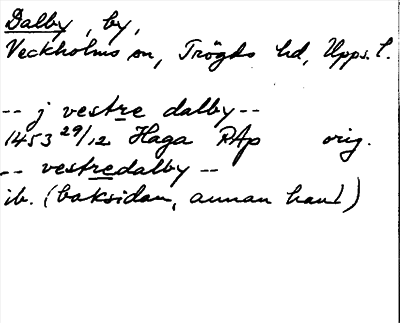 Dalby, by,
Veckholms sn, Trögds hd, Upps. l.
-- j vestre dalby --
1453 29/12 Haga RAp orig.
-- vestredalby --
ib. (baksidan, annan hand)